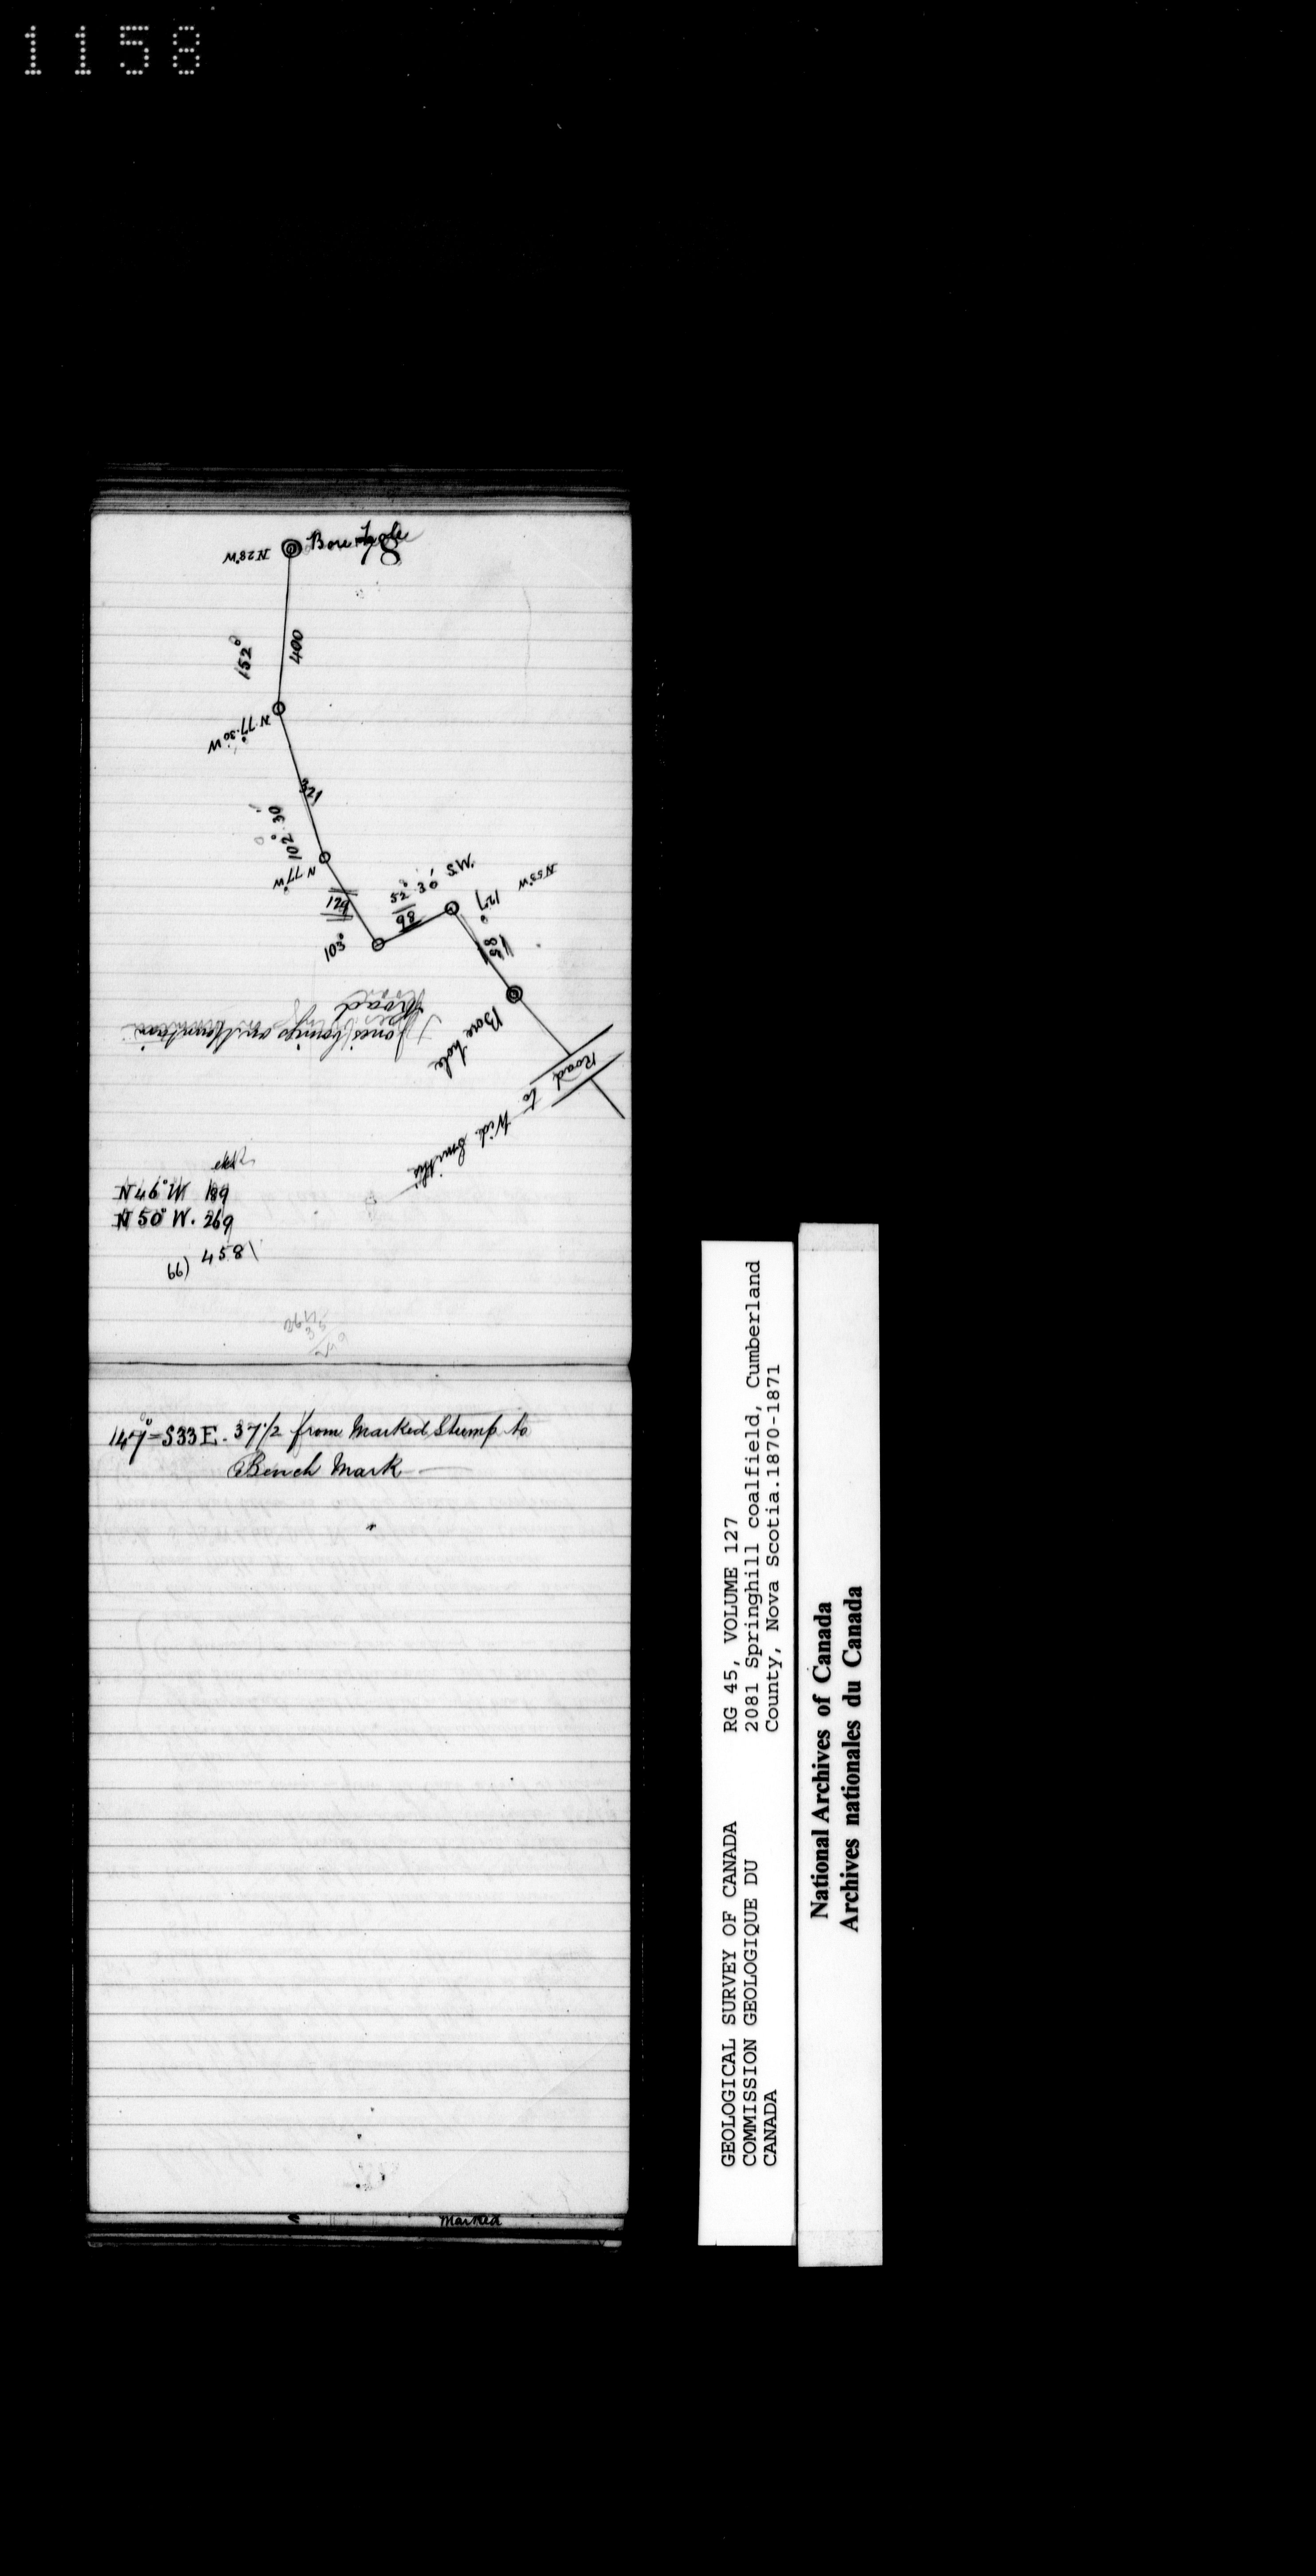 1158
Bore hole
N28°W
152°
400
N.77°.30'W
321
102°.30'
N77°W
129
103°
52°.30'
98
M.S.
127°
N53°W
85
Bore hole
Road
to Wid. Smith's
Jones boring on Mountain
Road
N46°W 189
N50°W. 269
458
(99
147°=S33E. 37 1/2 from Marked Stump to
Bench Mark
Marked
GEOLOGICAL SURVEY OF CANADA
COMMISSION GEOLOGIQUE DU
CANADA
RG 45, VOLUME 127
2081 Springhill coalfield, Cumberland
County, Nova Scotia.1870-1871
National Archives of Canada
Archives nationales du Canada